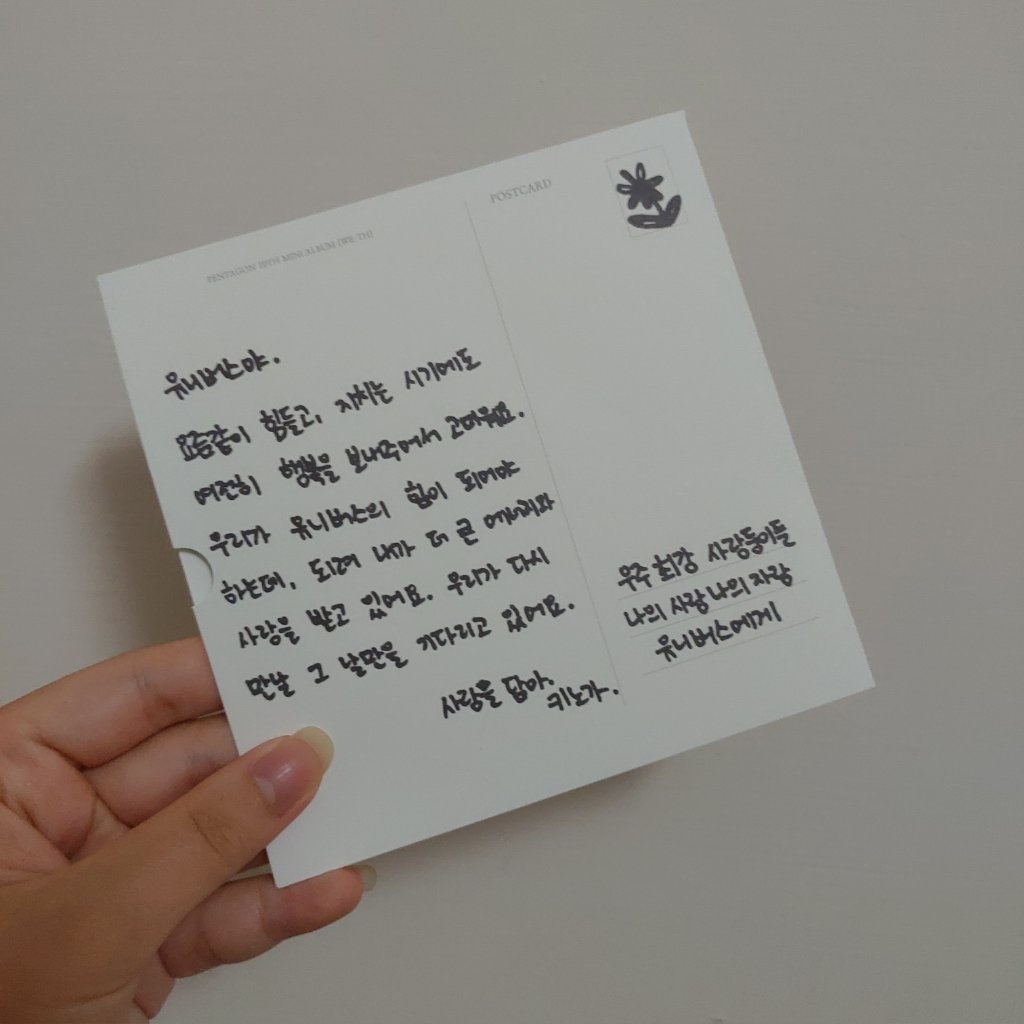 PENTAGON 10TH MINI ALBUM [WE:TH]
POSTCARD
유니버스야.
요즘같이 힘들고, 지치는 시기에도
여전히 행복을 보내주어서 고마워요.
우리가 유니버스의 힘이 되어야
하는데, 되려 내가 더 큰 에너지와
사랑을 받고 있어요. 우리가 다시
만날 그 날만을 기다리고 있어요.
사랑을 담아.
키노가.
우주 최강 사랑둥이들
나의 사랑 나의 자랑
유니버스에게